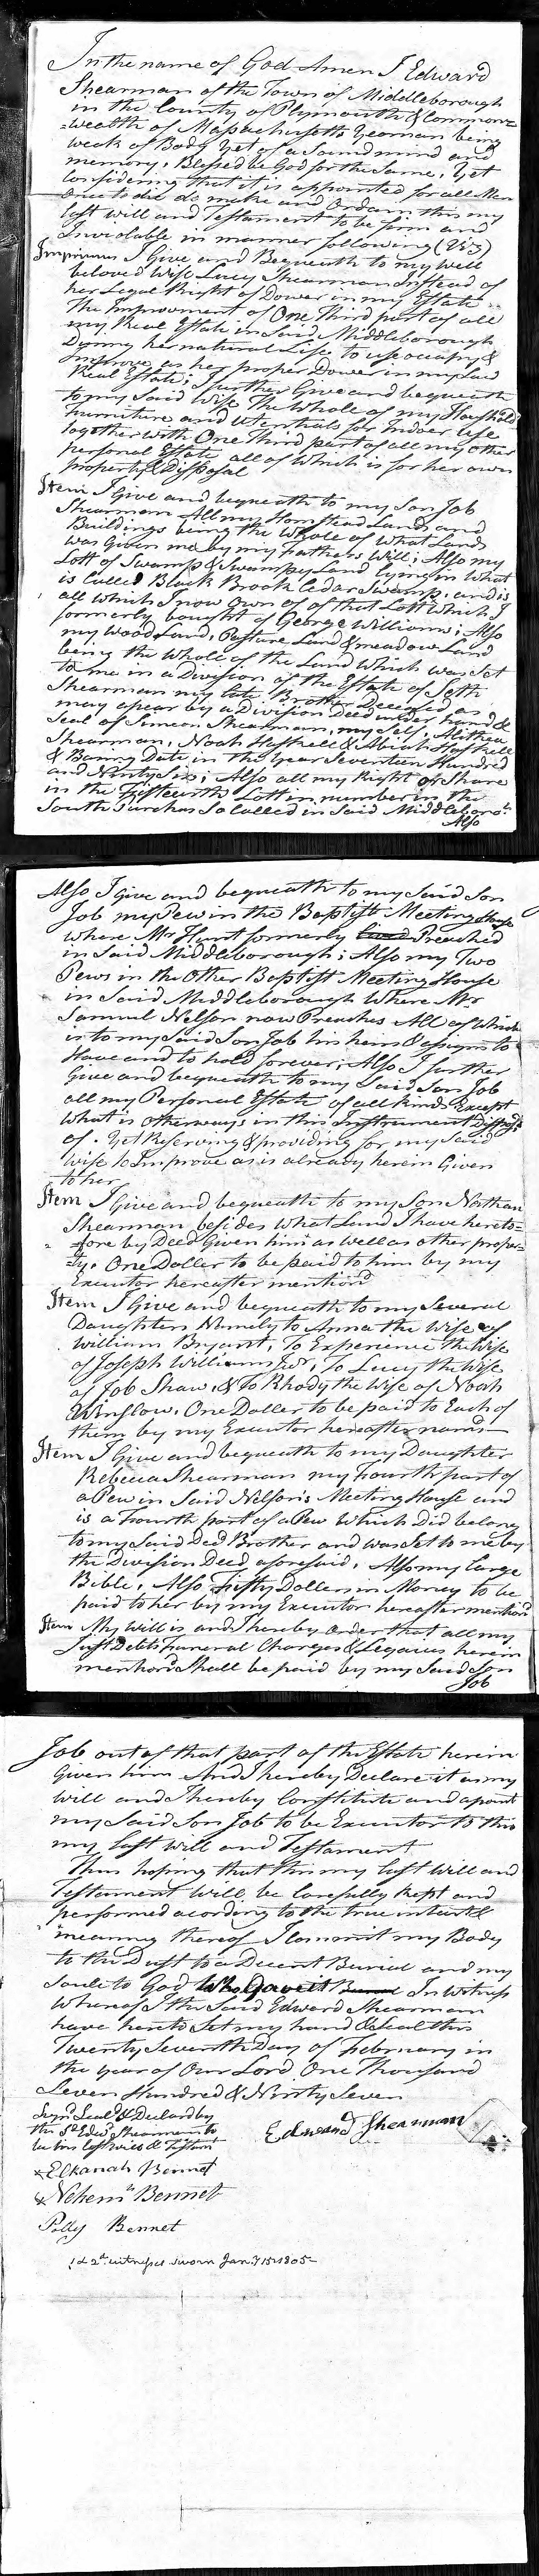 In the name of God Amen I Edward
Shearman of the Town of Middleborough
in the County of Plymouth & Common=
=wealth of Massachusetts Yeoman being
weak of Body Yet of a Sound mind and
memory, Blessed be God for the Same, Yet
Considering that it is appointed for all Men
once to die do make and Ordain this my
last will and Testament to be firm and
Inviolable in manner following (Viz)
Imprimus I Give and Bequeath to my well
beloved Wife Lucy Shearman Instead of
her Legal Right of Dower in my Estate
The Improvement of One Third part of all
my Real Estate in Said Middleborough
During her natural Life to use occupy &
Improve as her proper Dower in my Said
Real Estate; I further Give and bequeath
to my Said Wife The Whole of my Household
furniture and Utentials for Indoor Use
together with One Third part of all my other
personal Estate all of Which is for her own
property & Disposal
Item I Give and bequeath to my Son Job
Shearman All my Homstead Lands and
Buildings being the Whole of What Lands
was Given me by my Fathers Will; Also my
Lott of Swamp & Swampy Land lying in What
is Called Black Brook Cedar Swamp, and is
all Which I now own of of that Lott Which I
formerly bought of George Williams; Also
my Wood Land, Pasture Land & meadow Land
being the Whole of the Land Which was Set
to me in a Division of the Estate of Seth
Shearman my late Brother Deceased as
may apear by a Division Deed under hand &
Seal of Simeon Shearman, my Self, Alithea
Shearman, Noah Haskell & Abiah Haskell
& Baring Date in the Year Seventeen Hundred
and Ninty Six; Also all my Right or Share
in the Fifteenth Lott in number in the
South Purchas So Called in Said Middleboro:
Also
Also I Give and bequeath to my Said Son
Job my Pew in the Baptist Meeting House
where Mr Hunt formerly Preached
in Said Middleborough; Also my Two
Pews in the Other Baptist Meeting House
in Said Middleborough Where Mr
Samuel Nelson now Preaches All of Which
is to my Said Son Job his heirs & assigns to
Have and to hold forever; Also I further
Give and bequeath to my Said Son Job
all my Personal Estate of all kinds Except
What is otherways in this Instrument Disposd
of. Yet Reserving & providing for my Said
wife to Improve as is already herein Given
to her
Item I Give and bequeath to my Son Nathan
Shearman besides What Land I have hereto=
=fore by Deed Given him as well as other proper=
=ty. One Doller to be paid to him by my
Executor hereafter mentiond
Item I Give and bequeath to my Several
Daughters Namely to Anna the Wife of
William Bryant, To Experience the Wife
of Joseph Williams Jur, To Lucy the Wife
of Job Shaw, & To Rhody the Wife of Noah
Winslow, One Doller to be paid to Each of
them by my Executor hereafter namd
Item I Give and bequeath to my Daughter
Rebecca Shearman my Fourth part of
a Pew in Said Nelson's Meeting House and
is a Fourth part of a Pew Which Did belong
to my Said Decd Brother and was Set to me by
the Division Deed aforesaid, Also my large
Bible, Also Fifty Dollers in Money to be
paid to her by my Executor hereafter mentiond
Item My Will is and I hereby order that all my
Just Debts Funeral Charges & Legacies herein
mentiond Shall be paid by my Said Son
Job
Job out of that part of the Estate herein
Given him And I hereby Declare it as my
will and I hereby Constitute and apoint
my Said Son Job to be Executor to this
my last will and Testament
Thus hoping that this my last Will and
Testament Will be Carefully Kept and
performed acording to the true intent &
meaning thereof I Commit my Body
to the Dust to a Decent Burial and my
Soule to God Who Gave it In Witness
Whereof I the Said Edward Shearman
have hereto Set my hand & Seal this
Twenty Seventh Day of February in
the Year of Our Lord One Thousand
Seven Hundred & Ninty Seven
Signd Seald & Declard by
the Sd Edwd Shearman to
be his last will & Testamt
Edward Shearman
x Elkanah Bennet
x Nehemh Bennet
Polly Bennet
1 & 2d witnesses sworn Jany 15 1805